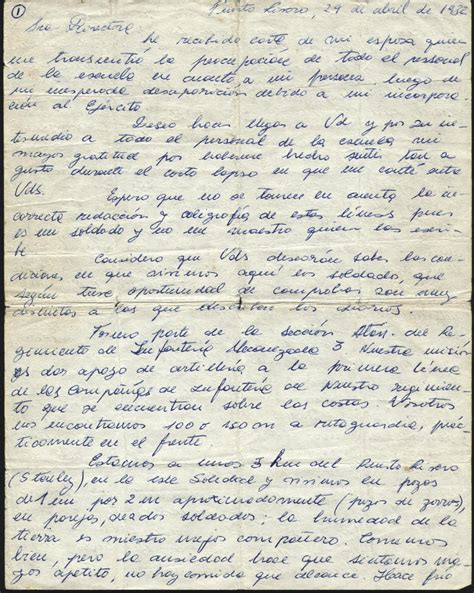 ①
Puerto Rivero, 29 de abril de 1982
Sra Directora
He recibido carta de mi esposa quien
me transmitió la preocupación de todo el personal
de la escuela en cuanto a mi persona luego de
mi inesperada desaparición debido a mi incorpora
ción al Ejército
Deseo hacer llegar a Vd y por su in
termedio a todo el personal de la escuela mi
mayor gratitud por haberme hecho sentir tan a
gusto durante el corto lapso en que me conté entre
Vds.
Espero que no se tomen en cuenta la in
correcta redacción y caligrafía de estas líneas pues
es un soldado y no un maestro quien las escri
be
Considero que Vds desearán saber las con
diciones en que vivimos aquí los soldados, que
según tuve oportunidad de comprobar son muy
distintas a las que describen los diarios.
Formo parte de la sección del Re
gimiento de Infantería Mecanizada 3 Nuestra misión
es dar apoyo de artillería a la primera línea
de las Compañías de Infantería de Nuestro regimien
to que se encuentran sobre las costas Nosotros
nos encontramos 100 o 150 m a retaguardia, prác
ticamente en el frente.
Estamos a unos 3 km del Puerto Rivero
(Stanley), en la isla Soledad y vivimos en pozos
de 1 m por 2 m aproximadamente (pozos de zorros),
en parejas, de a dos soldados; la humedad de la
tierra es nuestro mejor compañero. Comemos
bien, pero la ansiedad hace que sintamos ma
yor apetito, no hay comida que alcance. Hace frío